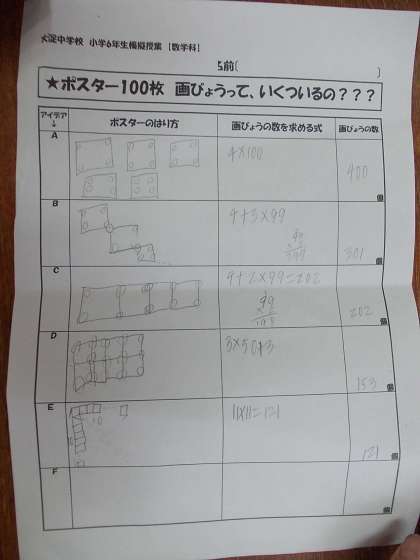 大淀中学校 小学6年生模擬授業 【数学科】
名前(
)
★ポスター100枚 画びょうって、いくついるの？？？
アイデア
↓
ポスターのはり方
画びょうの数を求める式
画びょうの数
A
4×100
400
個
B
4+3×99
99
301
個
C
4+2×99=202
99
202
個
D
3×50+3
153
個
E
10
11×11=121
121
個
F
個